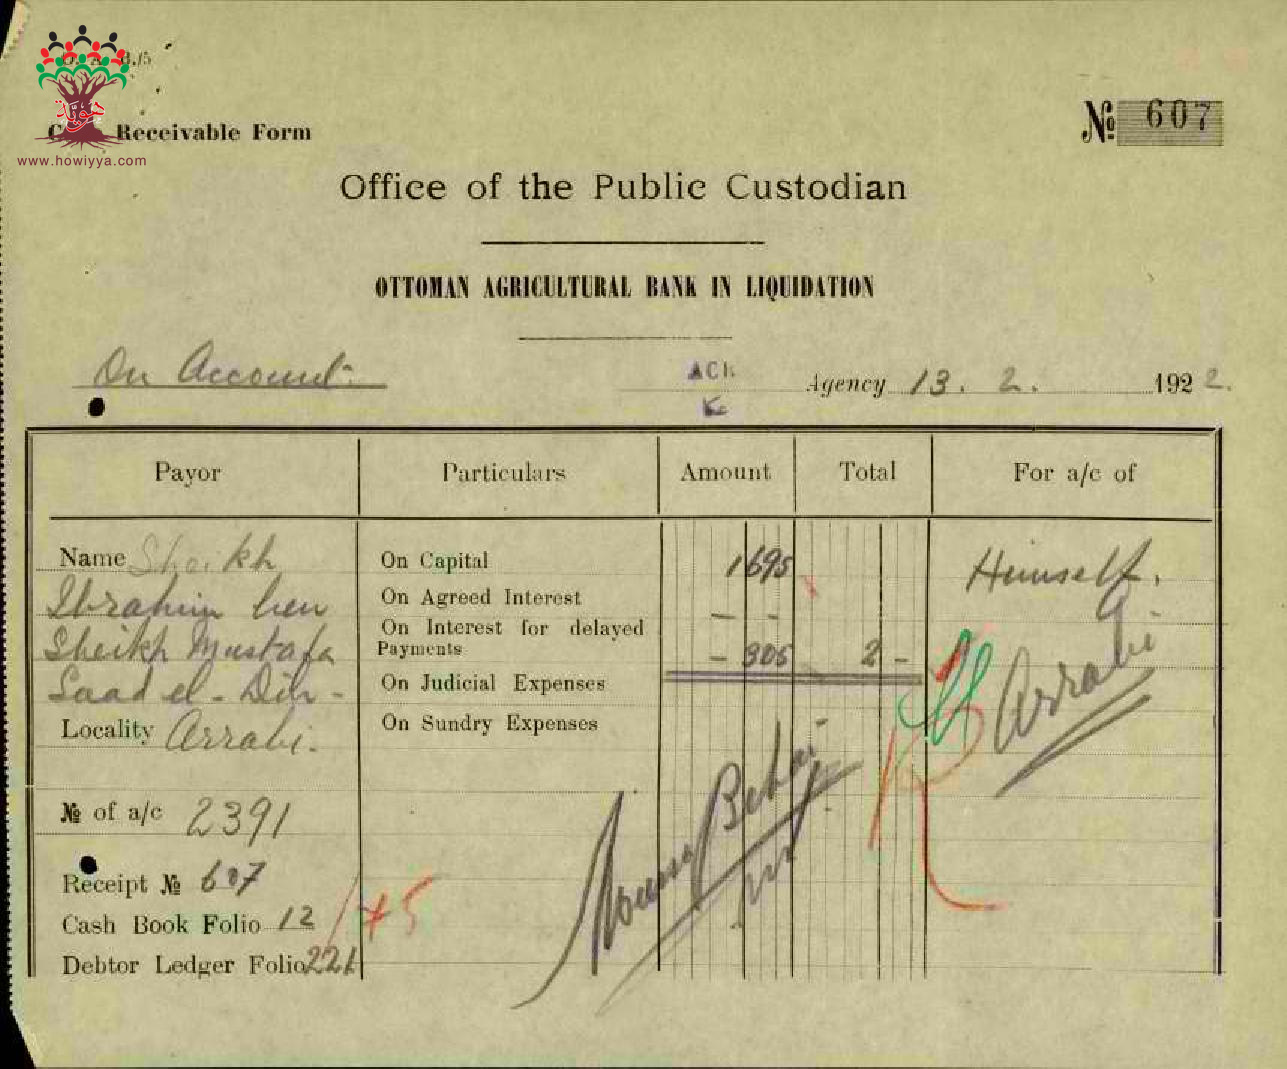 هوية
www.howiyya.com
Receivable Form
№ 607
Office of the Public Custodian
OTTOMAN AGRICULTURAL BANK IN LIQUIDATION
On Account.
Agency 13. 2. 1922.
Payor Particulars Amount Total For a/c of
Name Sheikh On Capital 1 695 Himself.
Ibrahim ben On Agreed Interest - -
Sheikh Mustafa On Interest for delayed Payments - 305 2 - Arrabi
Saad el-Din - On Judicial Expenses
Locality Arrabi. On Sundry Expenses
№ of a/c 2391
Receipt № 607
Cash Book Folio 12
Debtor Ledger Folio 221